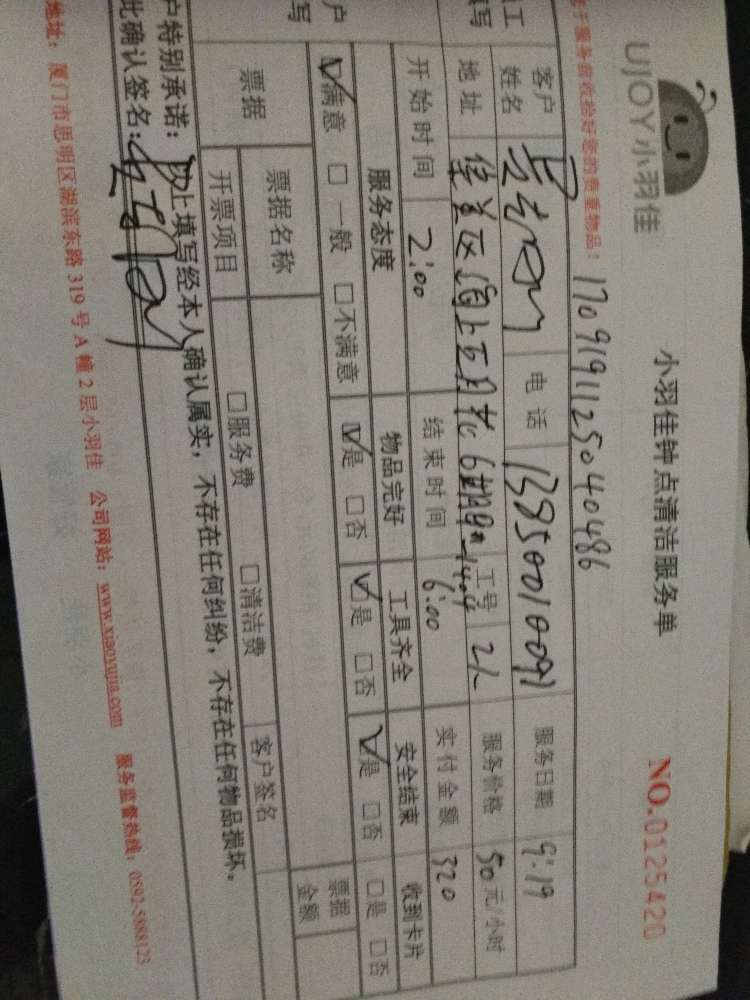 UJOY小羽佳
小羽佳钟点清洁服务单
NO.0125420
服务前收拾好您的贵重物品!
1709191125040486
客户姓名
电话
13850010091
服务日期
9.19
地址
集美区 6
工号
21
服务价格
50元/小时
开始时间
2:00
结束时间
6:00
实付金额
320
服务态度
物品完好
工具齐全
安全结束
收到卡片
☑满意 □一般 □不满意
☑是 □否
☑是 □否
☑是 □否
□是 □否
票据
票据名称
票据金额
开票项目
□服务费 □清洁费
客户签名
户特别承诺:以上填写经本人确认属实,不存在任何纠纷,不存在任何物品损坏。
此确认签名:
地址:厦门市思明区湖滨东路319号A幢2层小羽佳 公司网站:www.xiaoyujia.com 服务监督热线:0592-5888123